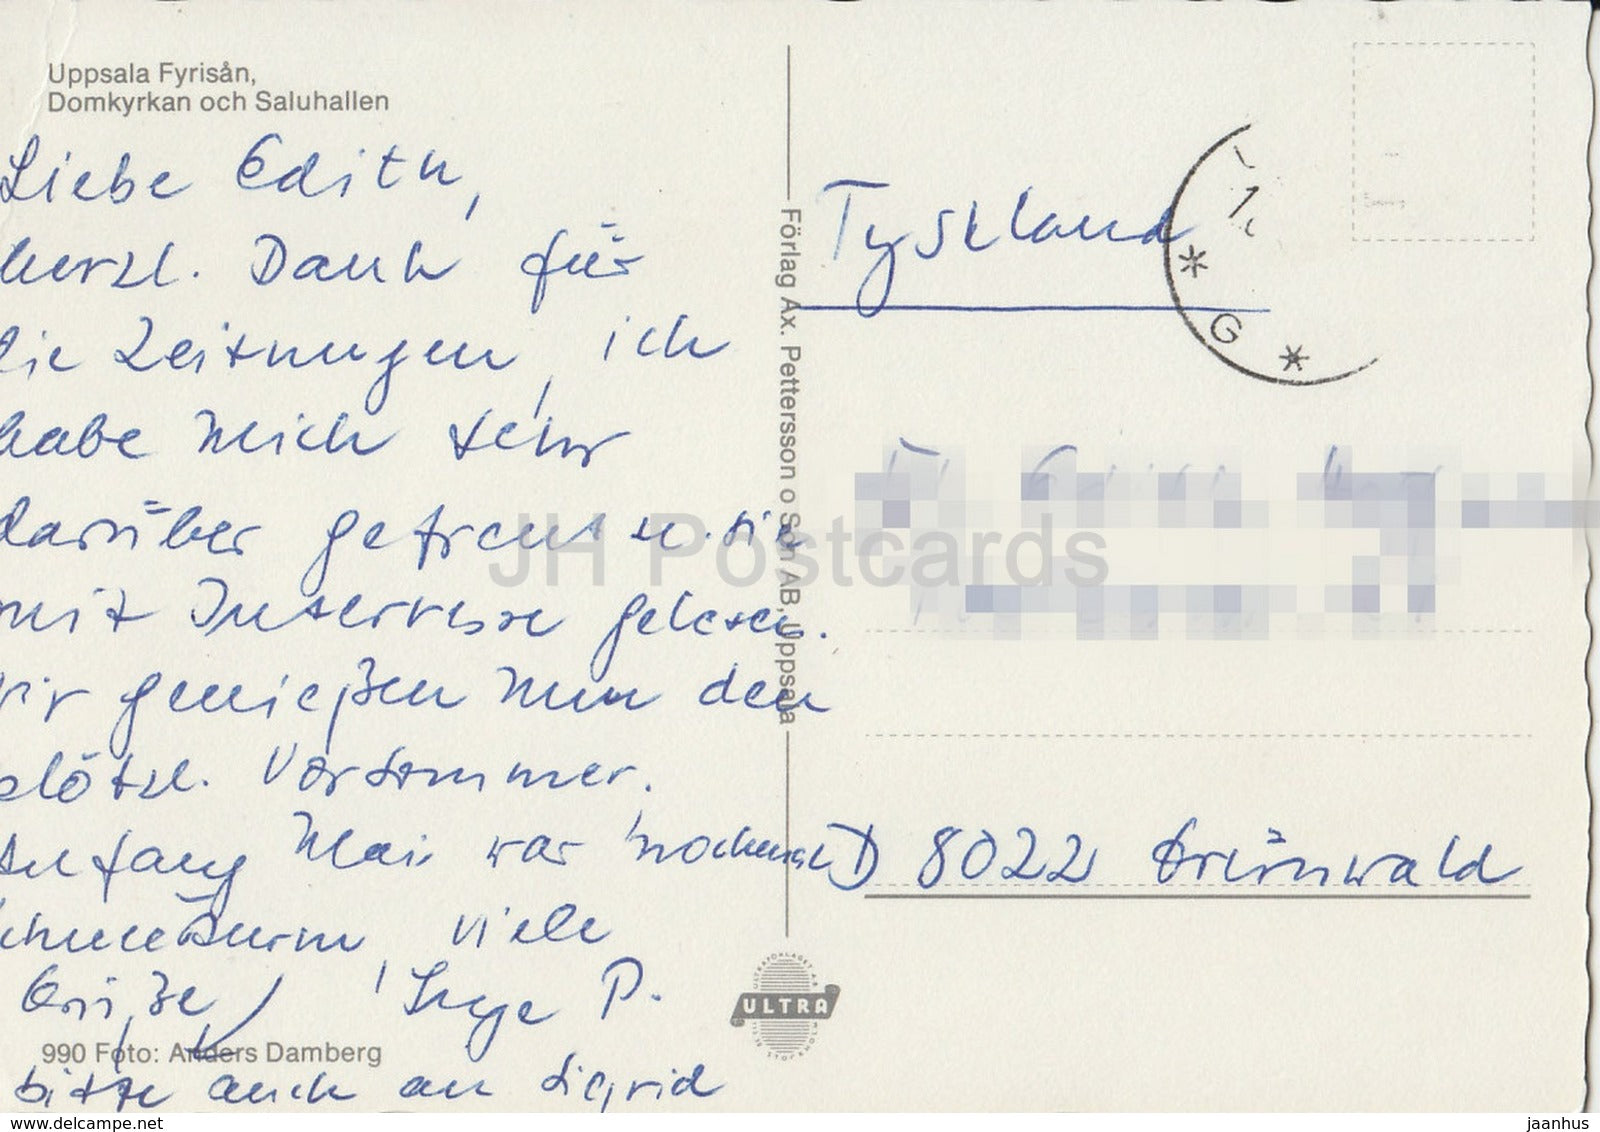 Uppsala Fyrisån,
Domkyrkan och Saluhallen
Liebe Edith,
herzl. Dank für
die Zeitungen, ich
habe mich sehr
darüber gefreut u. sie
mit Interesse gelesen.
Wir genießen nun den
plötzl. Vorsommer.
Anfang Mai war nochmal
Schneesturm, viele
Grüße, Inge P.
990 Foto: Anders Damberg
bitte auch an Sigrid
Förlag Ax. Pettersson o Son AB, Uppsala
ULTRA
Tyskland
G
D 8022 Grünwald
JH Postcards
www.delcampe.net
jaanhus